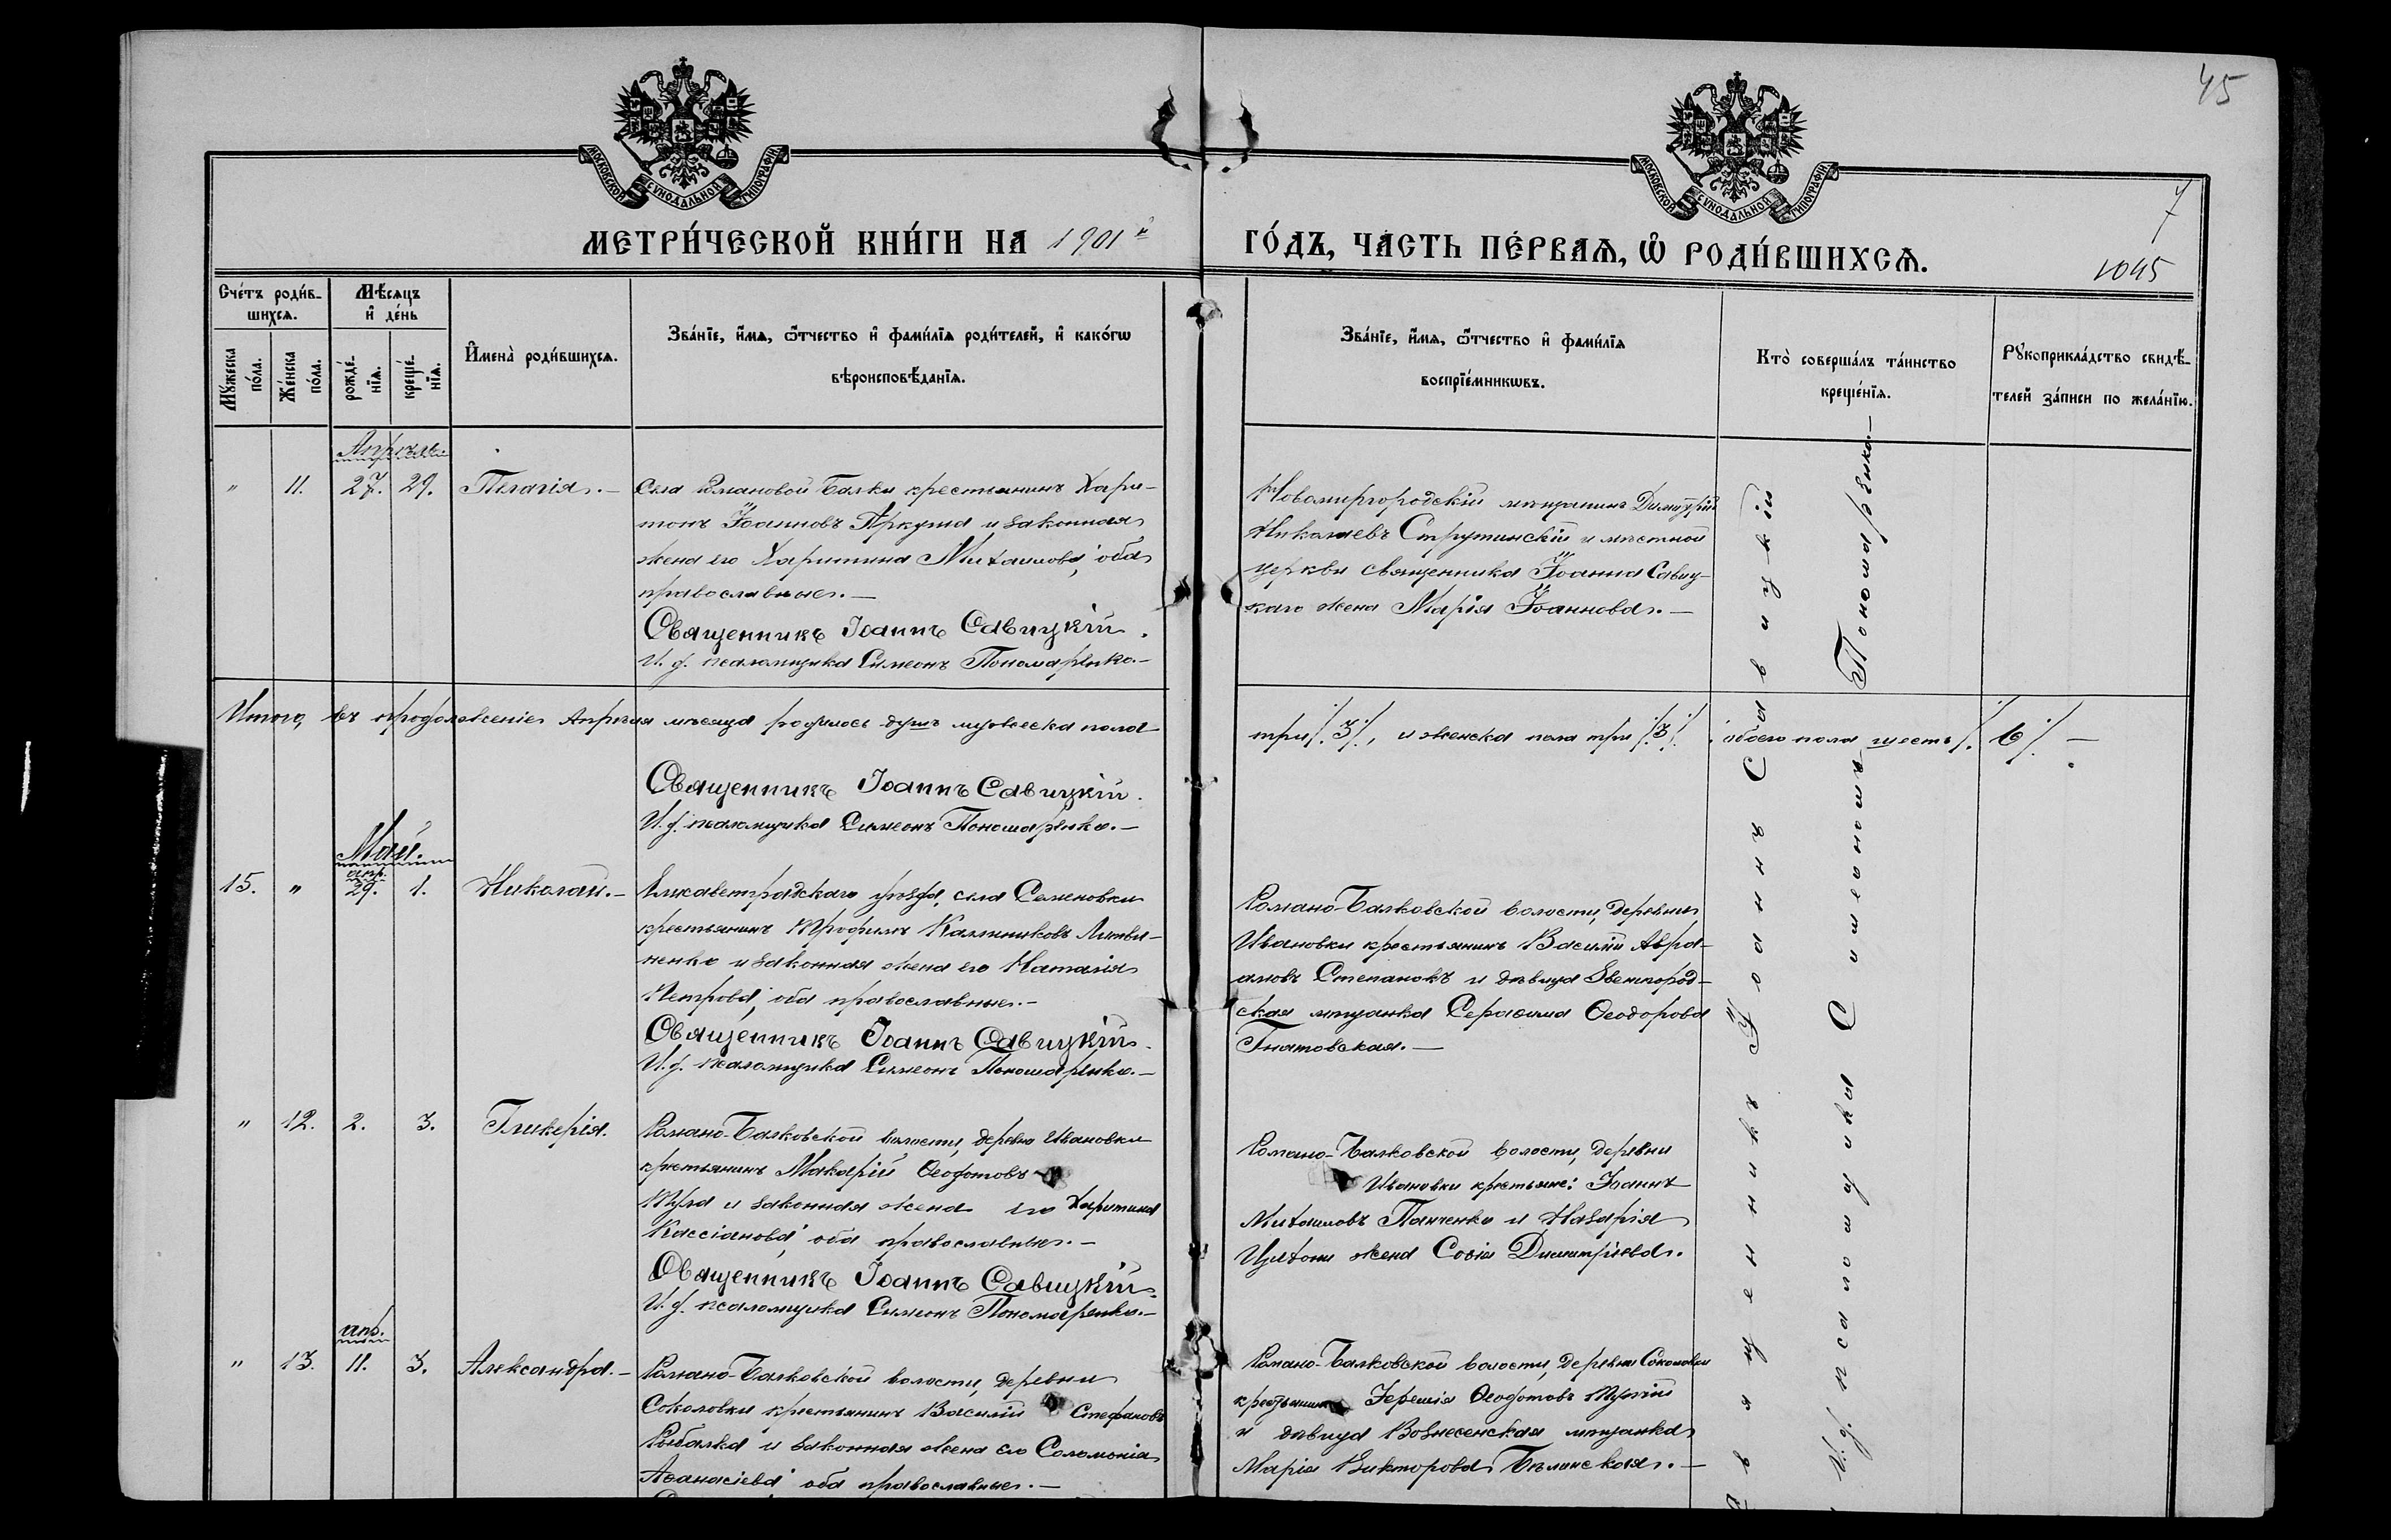 45
МОСКОВСКОЙ СѴНОДАЛЬНОЙ ТИПОГРАФІИ
МОСКОВСКОЙ СѴНОДАЛЬНОЙ ТИПОГРАФІИ
МЕТРИ́ЧЕСКОЙ КНИ́ГИ НА 1901й
ГО́ДЪ, ЧА́СТЬ ПЕ́РВАѦ, Ѡ РОДИ́ВШИХСѦ.
7
1045
Сче́тъ роди́в-
шихсѧ.
Мꙋ́жеска
по́ла.
Же́нска
по́ла.
Мѣ́сѧцъ
и҆ де́нь
рожде́-
нїѧ.
креще́-
нїѧ.
И҆мена̀ роди́вшихсѧ.
Зва́нїе, и҆́мѧ, ѻ҆́тчество и҆ фами́лїѧ роди́телей, и҆ како́гѡ
вѣроисповѣ́данїѧ.
Зва́нїе, и҆́мѧ, ѻ҆́тчество и҆ фами́лїѧ
воспрїе́мникѡвъ.
Кто̀ соверша́лъ та́инство
креще́нїѧ.
Рꙋкоприкла́дство свидѣ́-
телей за́писи по жела́нїю.
Апрѣль
" 11. 27. 29. Пелагія.—
Села Романовой Балки крестьянинъ Хари-
тонъ Іоанновъ Аркуша и законная
жена его Харитина Михаилова, оба
православные.—
Священникъ Іоаннъ Савицкій.
И. д. псаломщика Симеонъ Пономаренко.—
Новомиргородскій мѣщанинъ Димитрій
Николаевъ Струтинскій и мѣстной
церкви священника Іоанна Савиц-
каго жена Марія Іоаннова.—
Итого, въ продолженіе Апрѣля мѣсяца родилось душъ мужеска пола
три /.3/., и женска пола три /.3/. обоего пола шесть /. 6 /. —
Священникъ Іоаннъ Савицкій.
И. д. псаломщика Симеонъ Пономаренко.—
Май.
апр.
15. " 29. 1. Николай.—
Елисаветградскаго уѣзда, села Семеновки
крестьянинъ Трофимъ Каллиниковъ Литви-
ненко и законная жена его Наталія
Петрова, оба православные.—
Священникъ Іоаннъ Савицкій.
И. д. псаломщика Симеонъ Пономаренко.—
Романо-Балковской волости, деревни
Ивановки крестьянинъ Василій Авра-
амовъ Степанокъ и дѣвица Звенигород-
ская мѣщанка Серафима Ѳеодорова
Гнатовская.—
" 12. 2. 3. Гликерія.
Романо-Балковской волости, деревни Ивановки
крестьянинъ Макарій Ѳеодотовъ
и законная жена его Харитина
Кассіанова, оба православные.—
Священникъ Іоаннъ Савицкій.
И. д. псаломщика Симеонъ Пономаренко.—
Романо-Балковской волости, деревни
Ивановки крестьяне: Іоаннъ
Михаиловъ Панченко и Назарія
жена Софія Димитріева.
апр.
" 13. 11. 3. Александра.—
Романо-Балковской волости, деревни
Соколовки крестьянинъ Василій Стефановъ
Рыбалка и законная жена его Соломонія
Аѳанасіева оба православные.—
Романо-Балковской волости, деревни Соколовки
крестьянинъ Іеремія Ѳеодотовъ
и дѣвица Вознесенская мѣщанка
Марія Викторова Бѣлинская.—
Священникъ Іоаннъ Савицкій
И. д. псаломщика Симеонъ Пономаренко.—